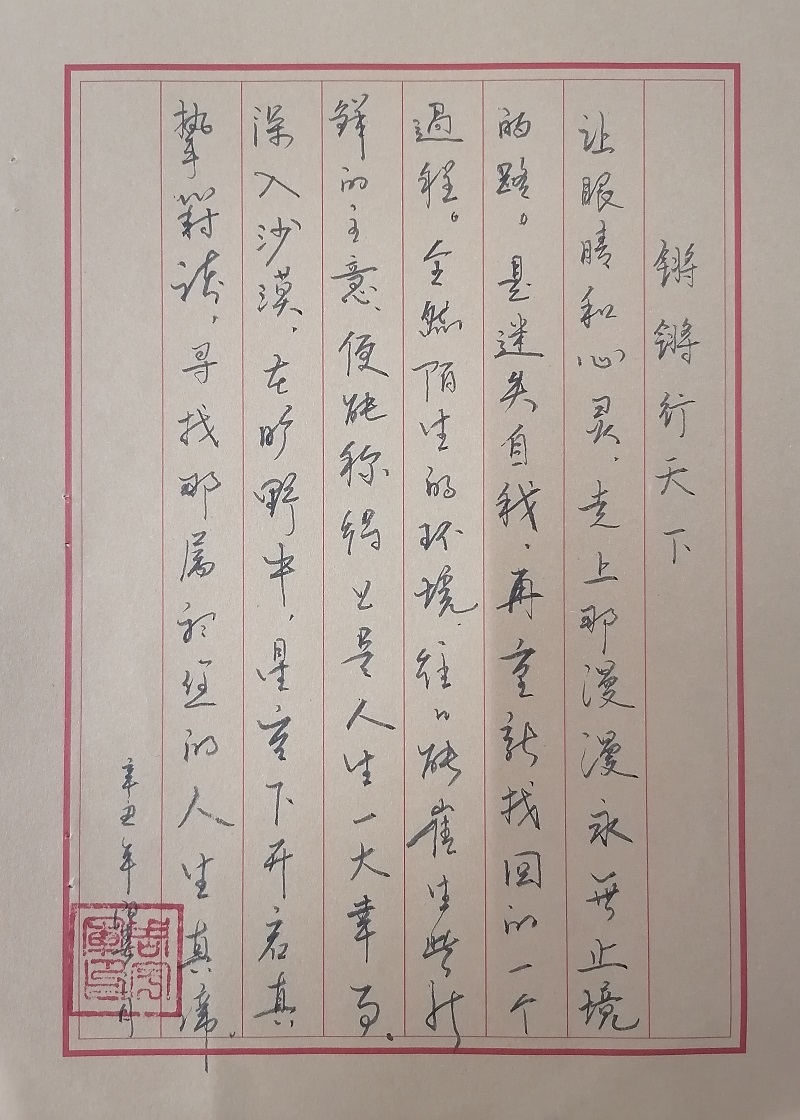 锵锵行天下
让眼睛和心灵，走上那漫漫永无止境
的路。是迷失自我，再重新找回的一个
過程。全然陌生的环境，往往能催生些新
鲜的主意，便能称得上是人生一大幸事。
深入沙漠，在旷野中，星空下开启真
挚對談，寻找那属於您的人生真谛。
辛丑年